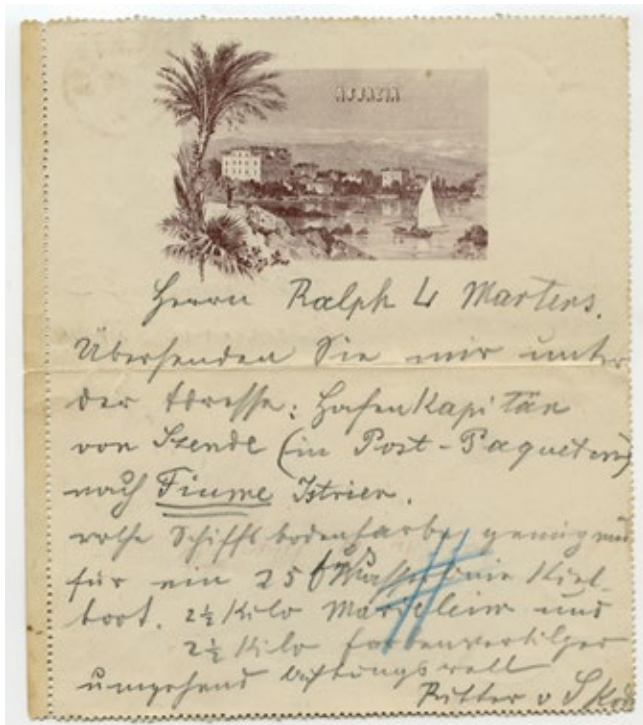 ABBAZIA
Herrn Ralph L Martens.
Übersenden Sie mir unter
der Adresse: Hafenkapitän
von Szende (in Post-Paqueten)
nach Fiume Istrien.
rothe Schiffsbodenfarbe, genügend
für ein 25 f Wasserlinie Kiel-
boot. 2½ Kilo Marineleim und
2½ Kilo Farbenvertilger
umgehend
Ritter v